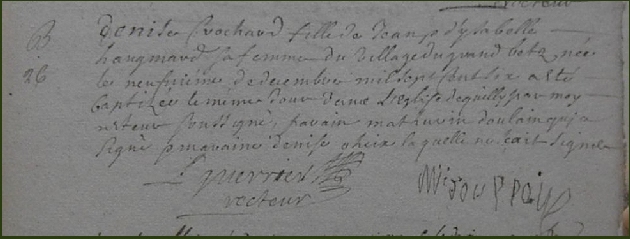 B
26
Denise Crochard fille de Jean & d'ysabelle
haugmard sa femme du village du grand beta née
le neufvieme de decembre mil sept sent six a esté
baptisée le même jour dans l'eglise de quilly par moy
recteur soussigné, parain mathurin doulain qui a
signé & maraine denise oheix laquelle ne scait signer
Guerrier
recteur